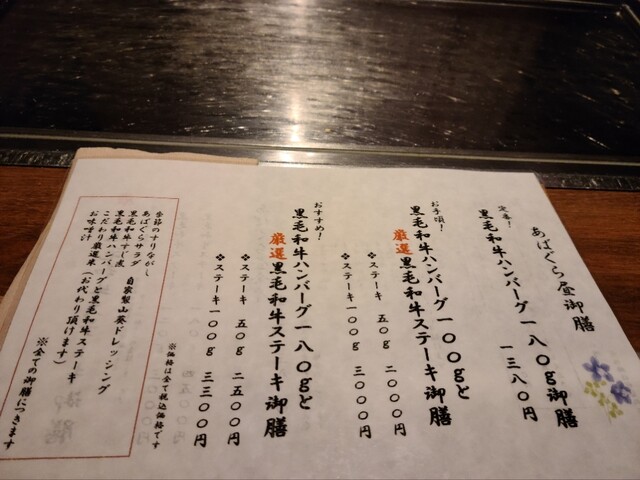 あばぐら昼御膳
定番！
黒毛和牛ハンバーグ一八〇g御膳
一三八〇円
お手頃！
黒毛和牛ハンバーグ一〇〇gと
厳選黒毛和牛ステーキ御膳
❖ステーキ 五〇g 二〇〇〇円
❖ステーキ一〇〇g 三〇〇〇円
おすすめ！
黒毛和牛ハンバーグ一八〇gと
厳選黒毛和牛ステーキ御膳
❖ステーキ 五〇g 二五〇〇円
❖ステーキ一〇〇g 三三〇〇円
※価格は全て税込価格です
季節のすりながし
あばぐらサラダ 自家製山葵ドレッシング
黒毛和牛すじ煮
黒毛和牛ハンバーグと黒毛和牛ステーキ
こだわり厳選米（お代わり頂けます）
お味噌汁
※全ての御膳につきます